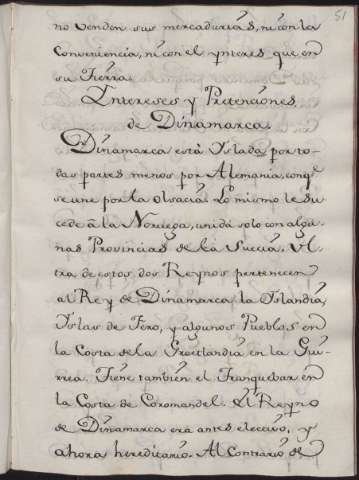 51
no venden sus mercadurias, ni con la
conveniencia, ni con el ynteres que en
su Tierra.
Yntereses y Pretenciones
de Dinamarca.
Dinamarca está Yslada por to-
das partes menos por Alemania, conqe.
se une por la olsacia. Lo mismo le su-
cede â la Noruega, unida solo con algu-
nas Provincias de la Succia. Ul-
tra de estos dos Reynos pertenecen
al Rey de Dinamarca la Yslandia,
Yslas de Fero, y algunos Pueblos en
la Costa de la Groetlandia en la Gui-
nea. Tiene tambien el Franquebar en
la Costa de Coromandel. El Reyno
de Dinamarca era antes electivo, y
ahora hereditario. Al Contrario de